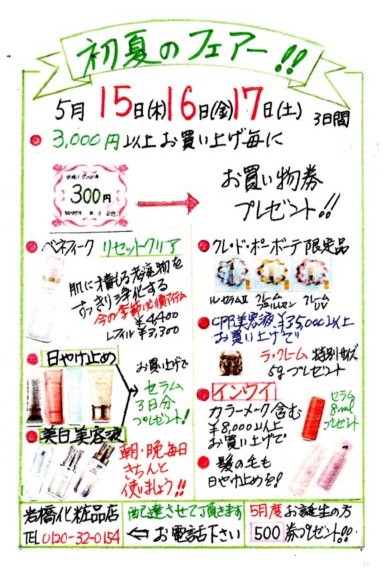 初夏のフェアー!!
5月 15日(木)16日(金)17日(土) 3日間
3,000円以上お買い上げ毎に
300円
お買い物券
プレゼント!!
ベネフィーク リセットクリア
肌に積る老廃物を
すっきり浄化する
今の季節必須アイテム
¥4,400
レフィル ¥3,300
日やけ止め
美白美容液
お買い上げで
セラム
3日分
プレゼント!
朝・晩毎日
きちんと
使いましょう!!
クレ・ド・ポーボーテ限定品
ル・セラムⅡ クレーム UV
CPB美容液 ¥35,000以上
お買い上げで
ラ・クレーム 特別サイズ
5gプレゼント!
インウイ
カラーメーク含む
¥8,000以上
お買い上げで
セラム
8ml
プレゼント
髪の毛も
日やけ止めを!
岩橋化粧品店
TEL 0120-32-0154
配達させて頂きます
⇐ お電話下さい
5月度 お誕生の方
500 券プレゼント!!